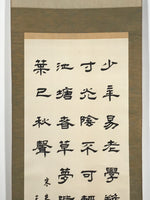 少年易老學難
寸光陰不可輕
池塘春草夢
葉已秋聲
宋